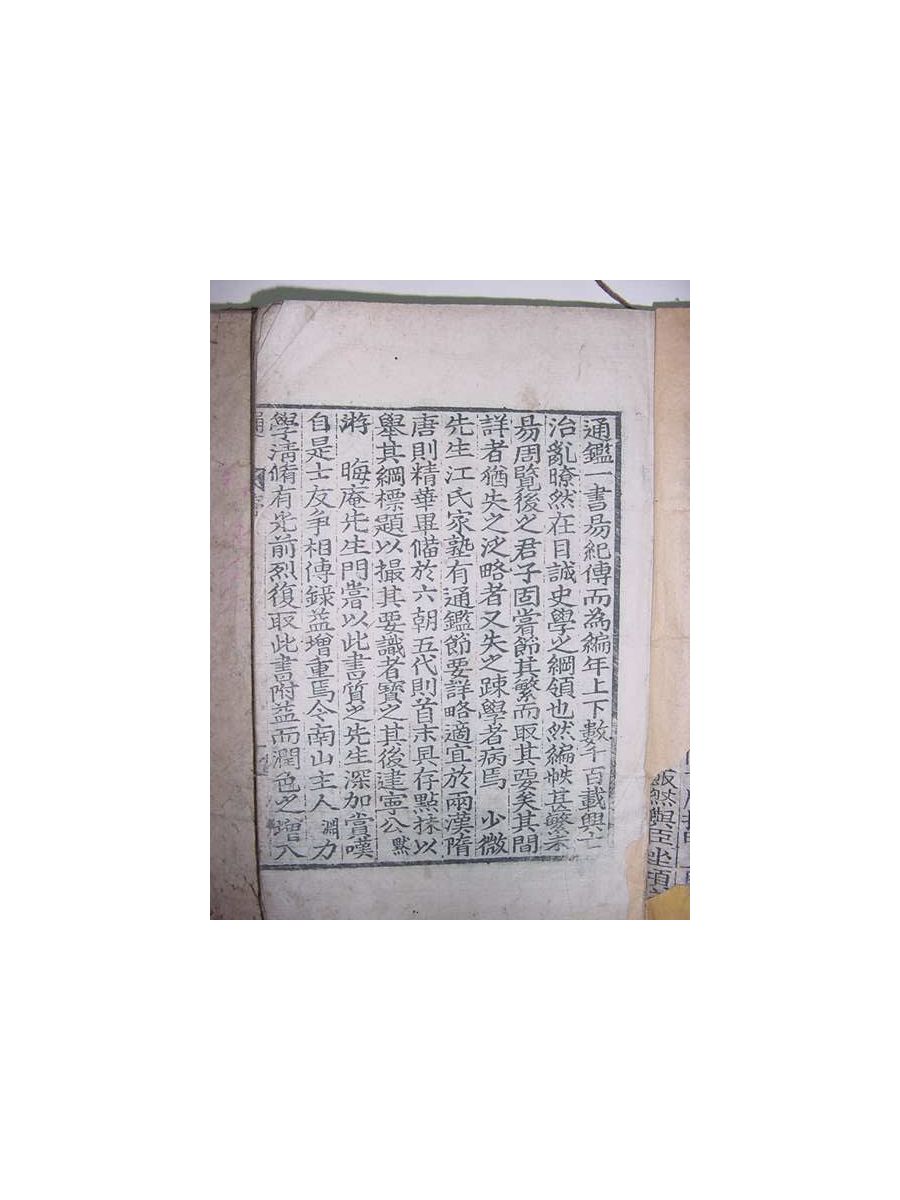 通鑑一書易紀傳而為編年上下數千百載興亡
治亂瞭然在目誠史學之綱領也然編帙甚繁未
易周覽後之君子固嘗節其繁而取其要矣其間
詳者猶失之泛略者又失之踈學者病焉 少微
先生江氏家塾有通鑑節要詳略適宜於兩漢隋
唐則精華畢備於六朝五代則首末具存點抹以
舉其綱標題以撮其要識者寳之其後建寧公黙
游 晦庵先生門嘗以此書質之先生深加賞嘆
自是士友爭相傳錄益增重焉今南山主人淵力
學清脩有光前烈復取此書附益而潤色之增入